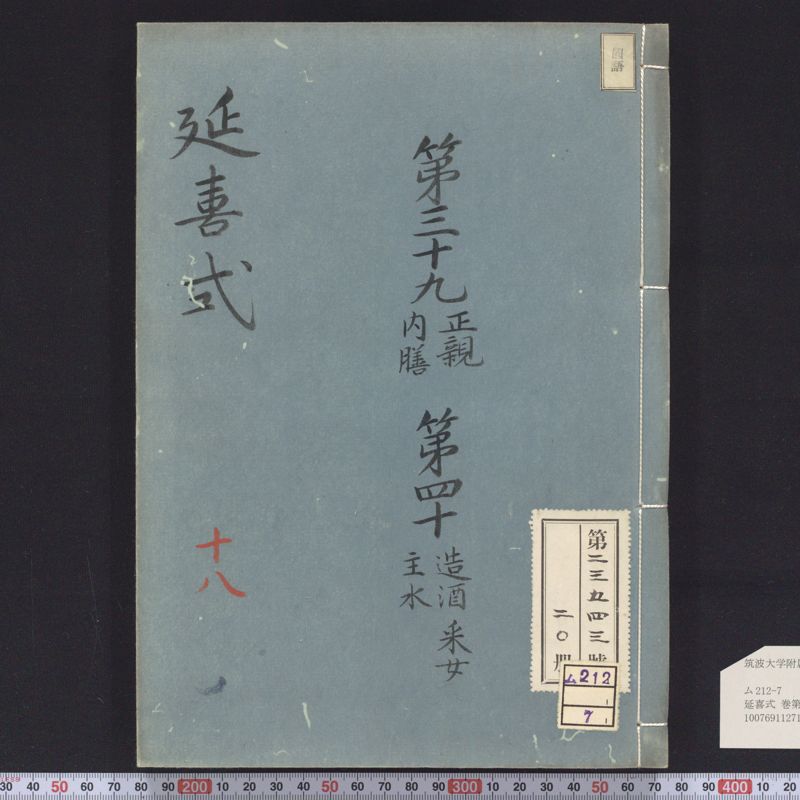 國語
第三十九 正親
内膳
第四十 造酒 采女
主水
延喜式
十八
第二三九四三號
二〇冊
ム212
7
筑波大学附属
ム212-7
延喜式 巻第
10076911271
30 40 50 60 70 80 90 200 10 20 30 40 50 60 70 80 90 300 10 20 30 40 50 60 70 80 90 400 10 20